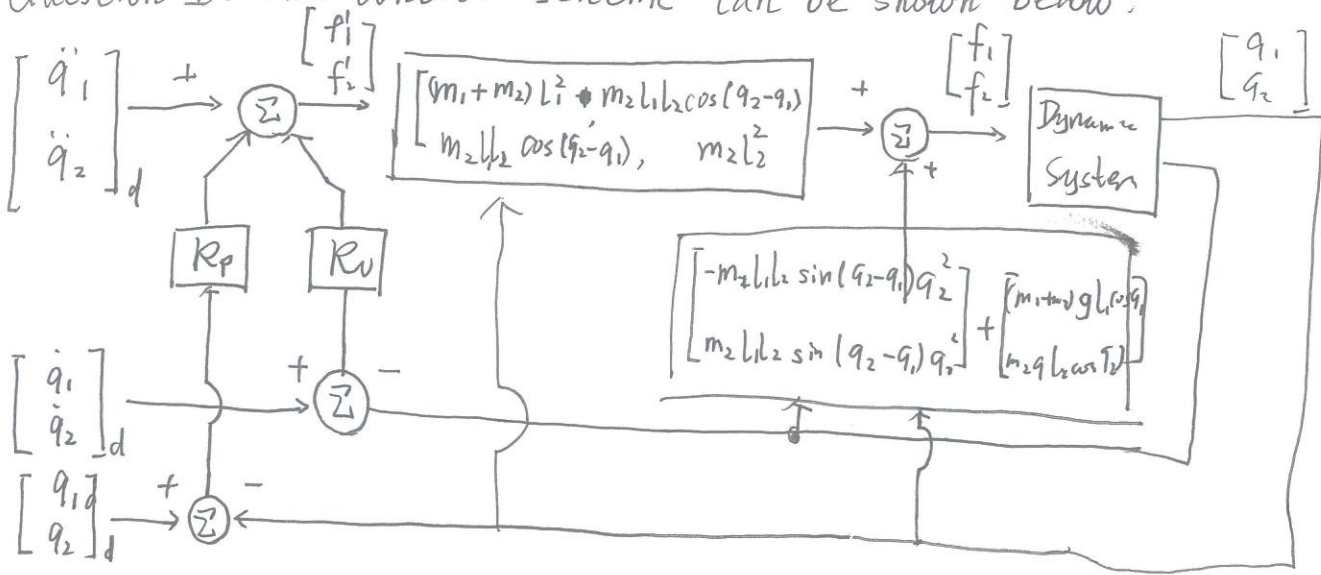 Question 2. The control scheme can be shown below:
[q̈1 q̈2]d
+
Σ
[f1' f2']
[(m1+m2)L1² • m2L1L2cos(q2-q1)
m2L1L2 cos(q2-q1), m2L2²]
+
Σ
+
[f1 f2]
Dynamic
System
[q1 q2]
Kp
Kv
[-m2L1L2 sin(q2-q1)q2²
m2L1L2 sin(q2-q1)q2²]
+
[(m1+m2)gL1cosq1
m2gL2cosq2]
[q̇1 q̇2]d
+
Σ
-
[q1d q2]d
+
Σ
-